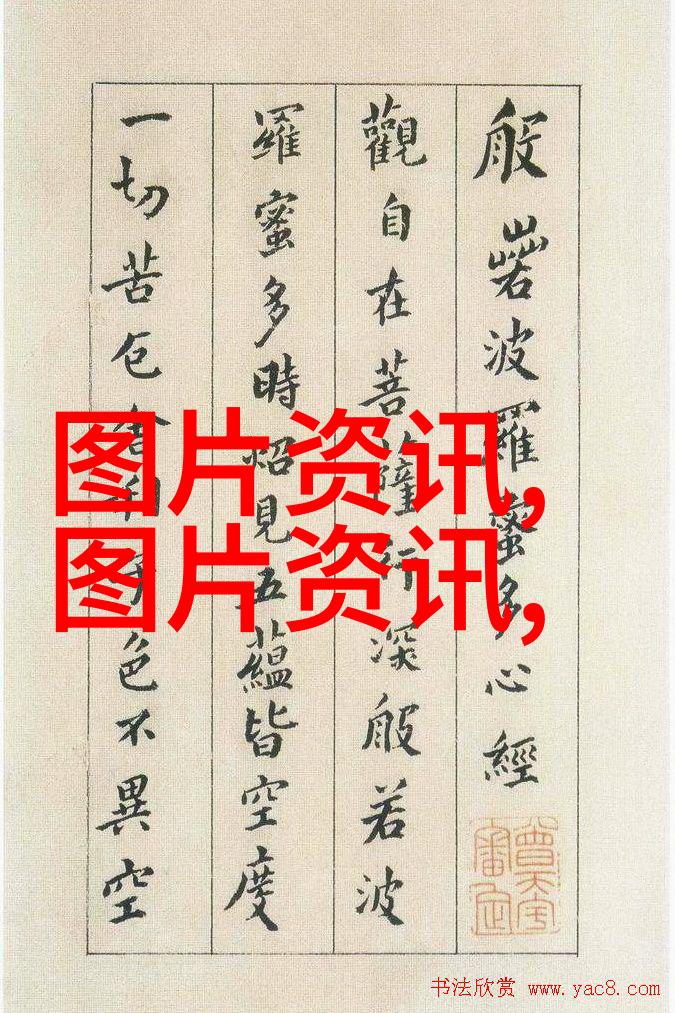 般若波羅蜜多心經
觀自在菩薩行深般若波
羅蜜多時炤見五蘊皆空度
一切苦厄舍利子色不異空
图片资讯,
图片资讯,
书法欣赏 www.yac8.com